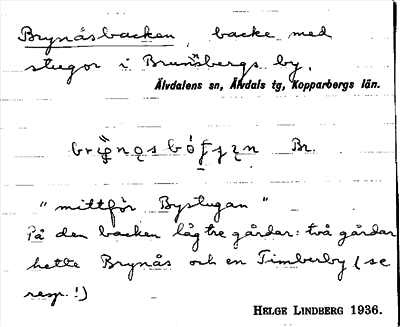 Brynåsbacken, backe med
stugor i Brunnsbergs by,
Älvdalens sn, Älvdals tg, Kopparbergs län.
Br.
"mittför Bystugan"
På den backen låg tre gårdar: två gårdar
hette Brynås och en Timberby (se
resp.!)
HELGE LINDBERG 1936.